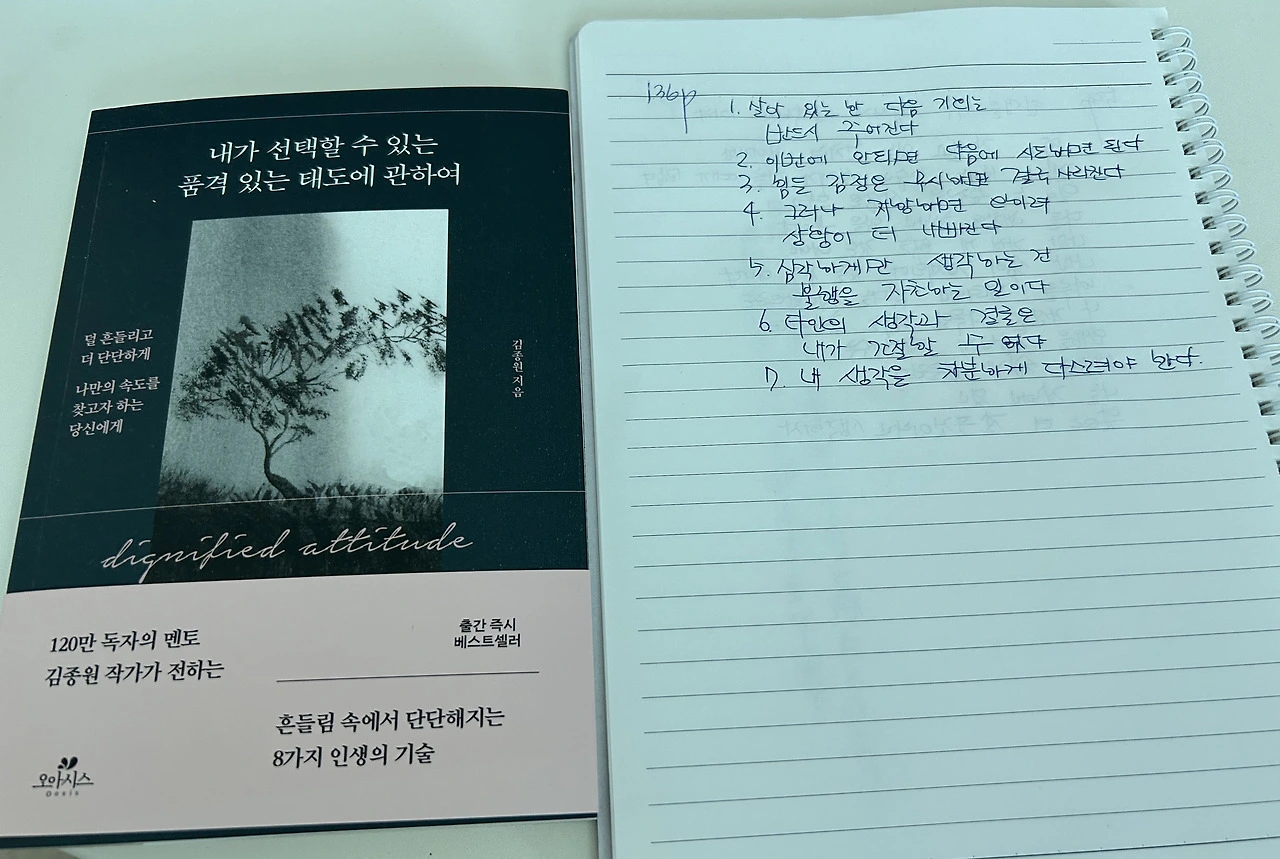 내가 선택할 수 있는
품격 있는 태도에 관하여
덜 흔들리고
더 단단하게
나만의 속도를
찾고자 하는
당신에게
김종원 지음
dignified attitude
120만 독자의 멘토
김종원 작가가 전하는
출간 즉시
베스트셀러
흔들림 속에서 단단해지는
8가지 인생의 기술
오아시스
Oasis
136p
1. 살아 있는 한 다음 기회는
반드시 주어진다
2. 이번에 안되면 다음에 시도하면 된다
3. 힘든 감정은 무시하면 결국 사라진다
4. 그러나 저항하면 오히려
상황이 더 나빠진다
5. 심각하게만 생각하는 건
불행을 자초하는 일이다
6. 타인의 생각과 결론은
내가 간절할 수 없다
7. 내 생각을 차분하게 다스려야 한다.